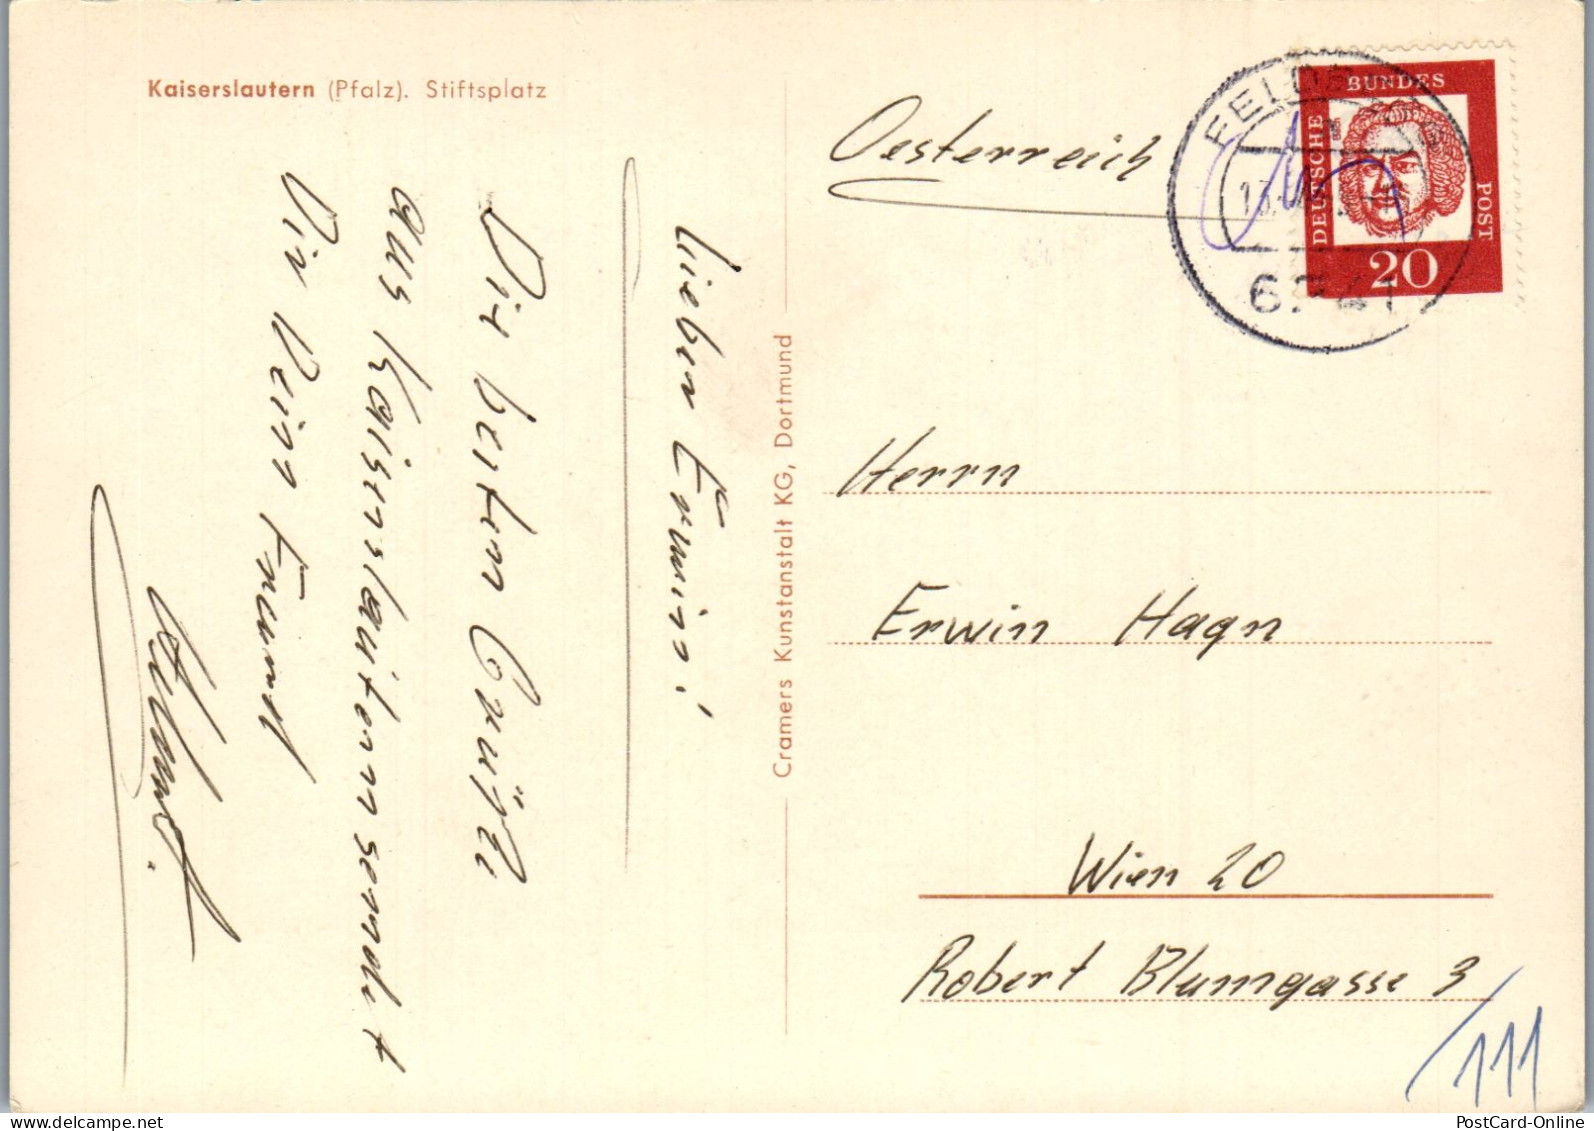 Kaiserslautern (Pfalz). Stiftsplatz
Lieber Erwin!
Die besten Grüße
aus Kaiserslautern sendet
Dir Dein Freund
Helmut.
Cramers Kunstanstalt KG, Dortmund
Oesterreich
DEUTSCHE
BUNDES
POST
20
Herrn
Erwin Hagn
Wien 20
Robert Blumgasse 3
/111
PostCard-Online